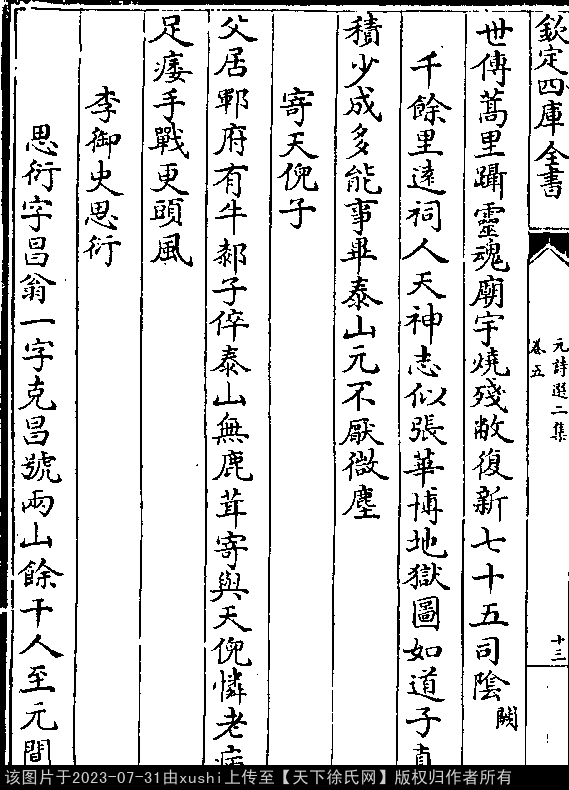 欽定四庫全書
元詩選二集
卷五
十三
世傳蒿里躡靈魂廟宇燒殘敝復新七十五司陰闕
千餘里遠祠人天神志似張華博地獄圖如道子真
積少成多能事畢泰山元不厭微塵
寄天倪子
父居鄆府有牛郝子倅泰山無鹿茸寄與天倪憐老病
足痿手戰更頭風
李御史思衍
思衍字昌翁一字克昌號兩山餘干人至元間
该图片于2023-07-31由xushi上传至【天下徐氏网】版权归作者所有